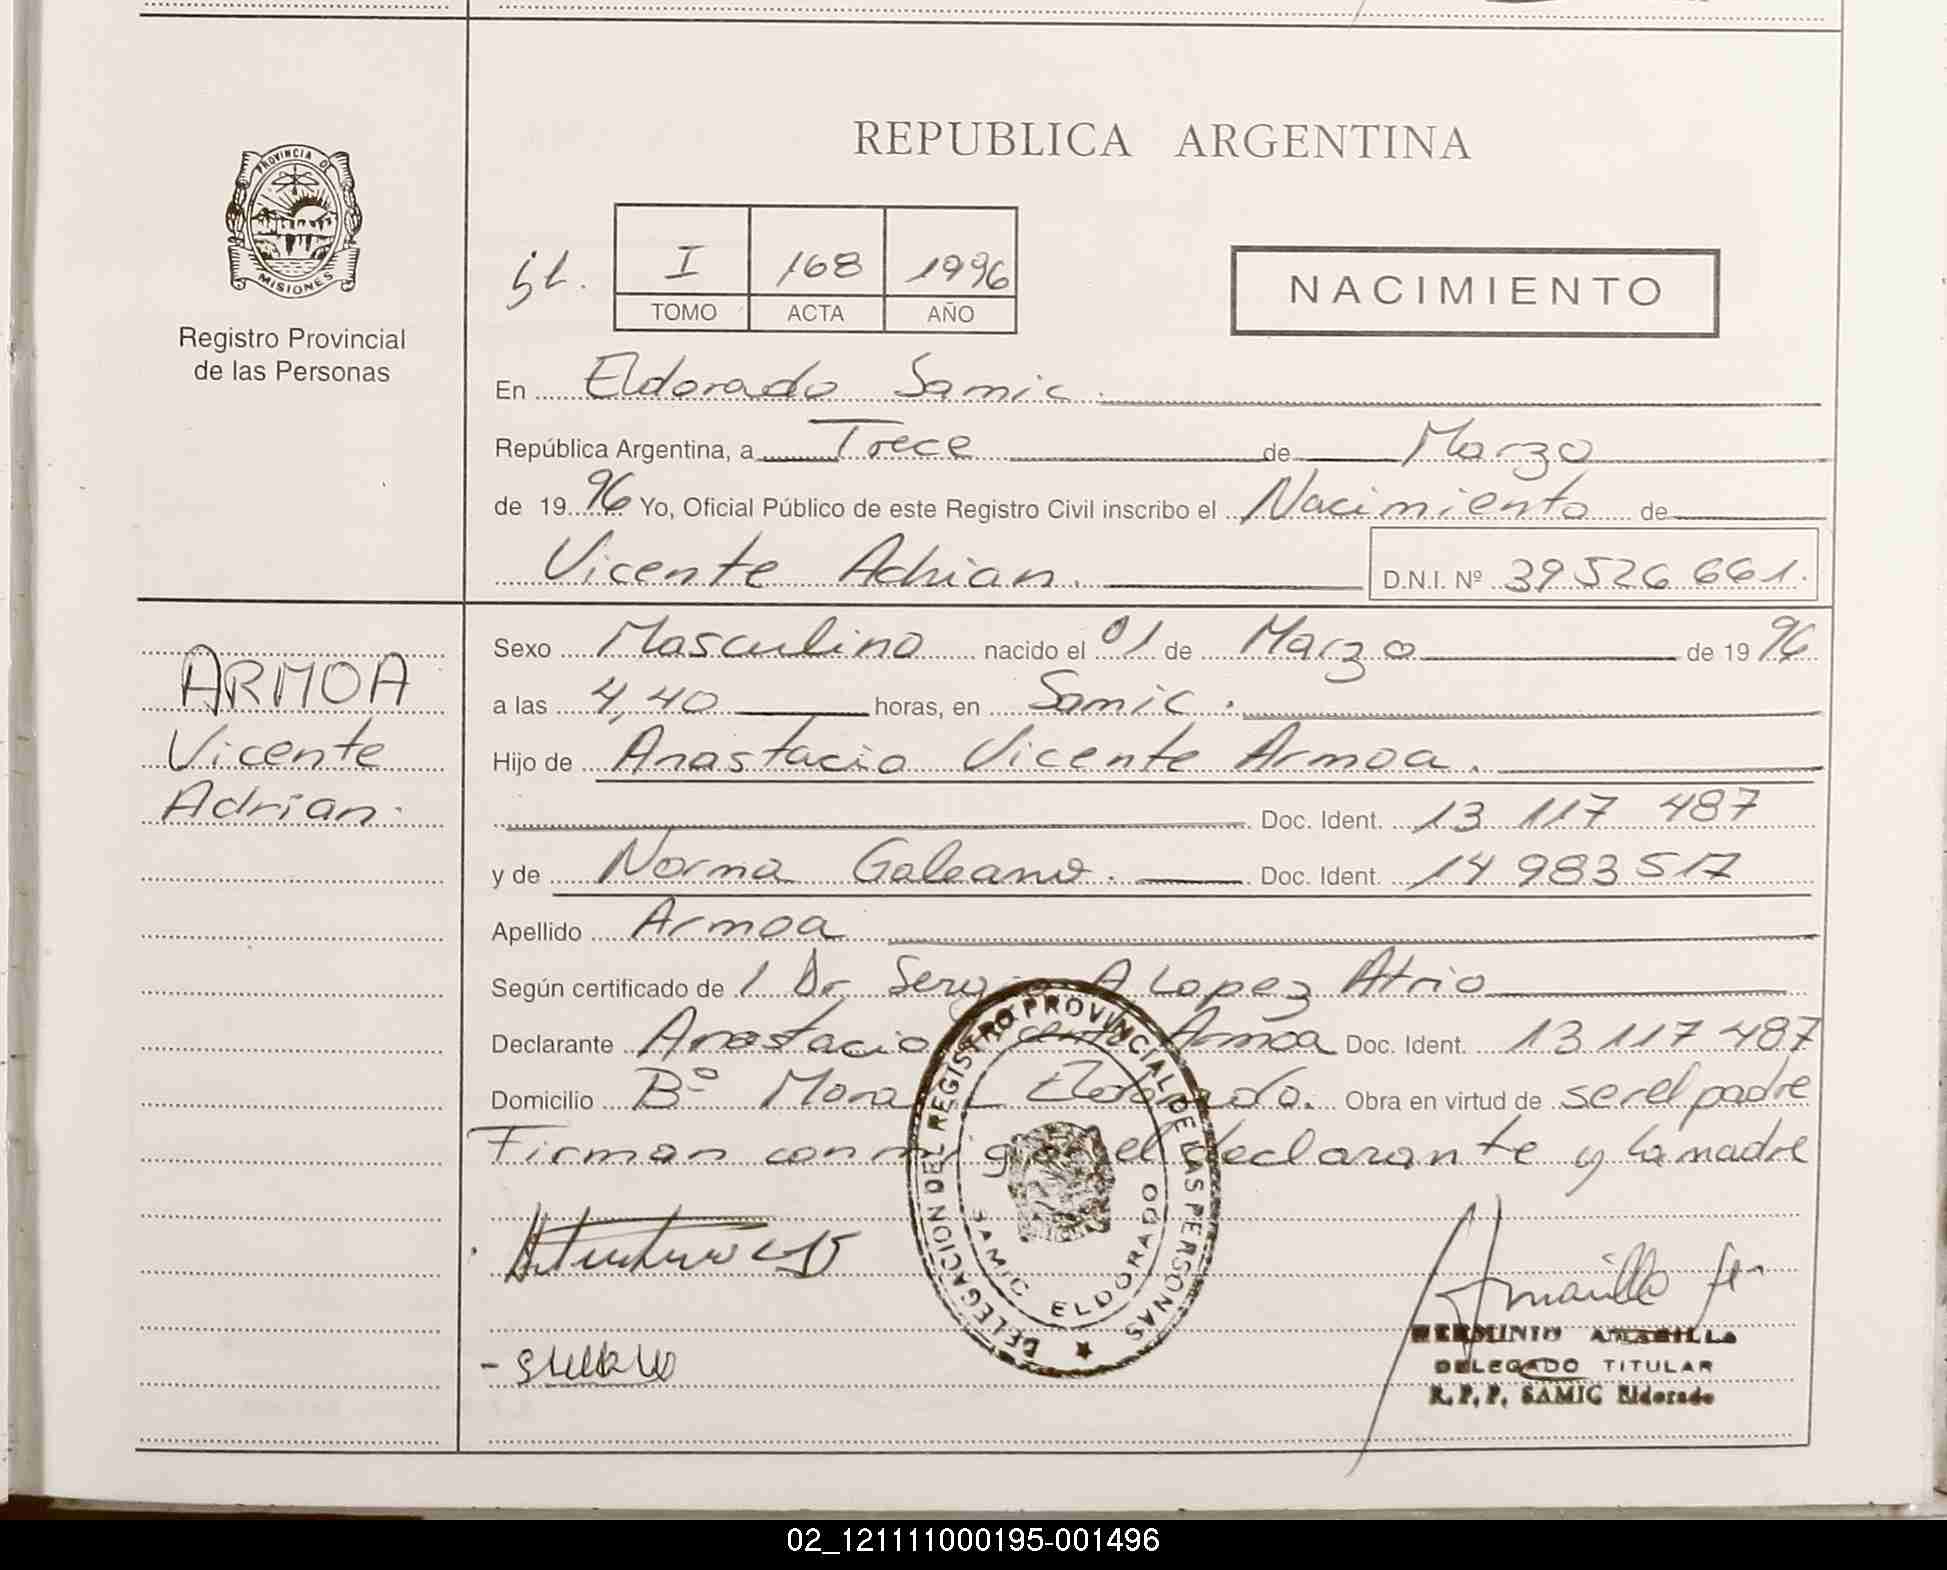 PROVINCIA DE
MISIONES
Registro Provincial
de las Personas
REPUBLICA ARGENTINA
I 168 1996
TOMO ACTA AÑO
NACIMIENTO
En Eldorado Samic.
República Argentina, a Trece de Marzo
de 1996 Yo, Oficial Público de este Registro Civil inscribo el Nacimiento de
Vicente Adrian. D.N.I. Nº 39526661.
ARMOA
Vicente
Adrian.
Sexo Masculino nacido el 01 de Marzo de 1996
a las 4,40 horas, en Samic.
Hijo de Anastacio Vicente Armoa.
Doc. Ident. 13 117 487
y de Norma Galeano. Doc. Ident. 14 983 517
Apellido Armoa
Según certificado de l Dr Sergio A Lopez Atrio
Declarante Anastacio Vicente Armoa Doc. Ident. 13 117 487
Domicilio Bº Mora Eldorado. Obra en virtud de ser el padre
Firman conmigo el declarante y la madre
DELEGACION DEL REGISTRO PROVINCIAL DE LAS PERSONAS
SAMIC ELDORADO
HERMINIO AMARILLA
DELEGADO TITULAR
R.P.P. SAMIC Eldorado
02_121111000195-001496